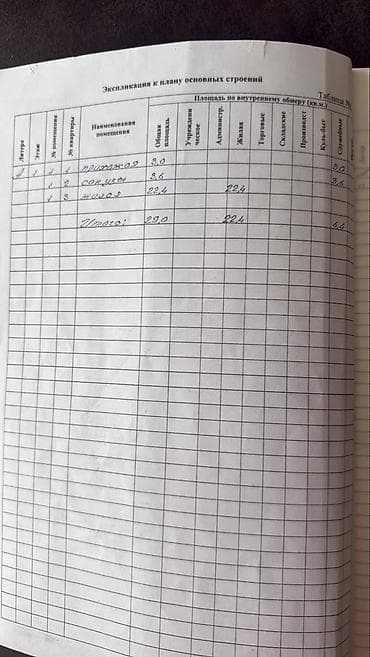 Экспликация к плану основных строений
Таблица №
Литера
Этаж
№ помещения
№ квартиры
Наименования помещения
Площадь по внутреннему обмеру (кв.м.)
Общая площадь
Учрежденческое
Администр.
Жилая
Торговые
Складские
Производст
Куль-быт
Служебная
1 1 1 прихожая 3,0 3,0
1 2 сануз. 3,6 3,6
1 3 жилая 22,4 22,4
Итого: 29,0 22,4 6,6